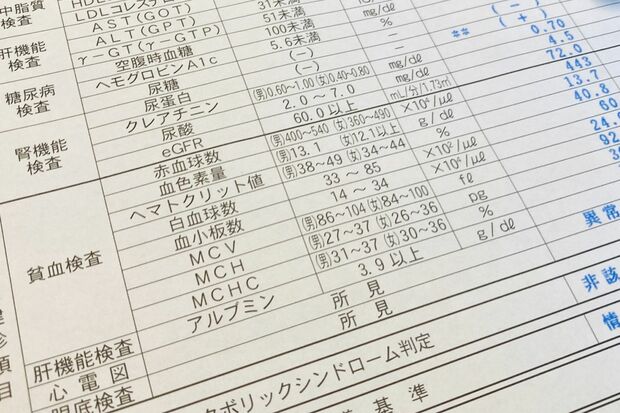 中脂質
検査
LDLコレステ
AST(GOT)
ALT(GPT) 31未満
肝機能
検査
γ-GT(γ-GTP) 51未満
空腹時血糖 100未満 mg/dℓ
糖尿病
検査
ヘモグロビンA1c 5.6未満 %
尿糖 (-) － (-)
尿蛋白 (-) ** (+)
腎機能
検査
クレアチニン (男)0.60~1.00 (女)0.40~0.80 mg/dℓ 0.70
尿酸 2.0~7.0 mg/dℓ 4.5
eGFR 60.0以上 mL/分/1.73㎡ 72.0
貧血検査
赤血球数 (男)400~540 (女)360~490 ×10⁴/μℓ 443
血色素量 (男)13.1 (女)12.1以上 g/dℓ 13.7
ヘマトクリット値 (男)38~49 (女)34~44 % 40.8
白血球数 33~85 ×10²/μℓ 60
血小板数 14~34 ×10⁴/μℓ 24.9
MCV (男)86~104 (女)84~100 fℓ 92
MCH (男)27~37 (女)26~36 pg
MCHC (男)31~37 (女)30~36 %
肝機能検査 アルブミン 3.9以上 g/dℓ
心電図 所見 異常
眼底検査 所見
診
項
目
ボリックシンドローム判定 非該
基準 情